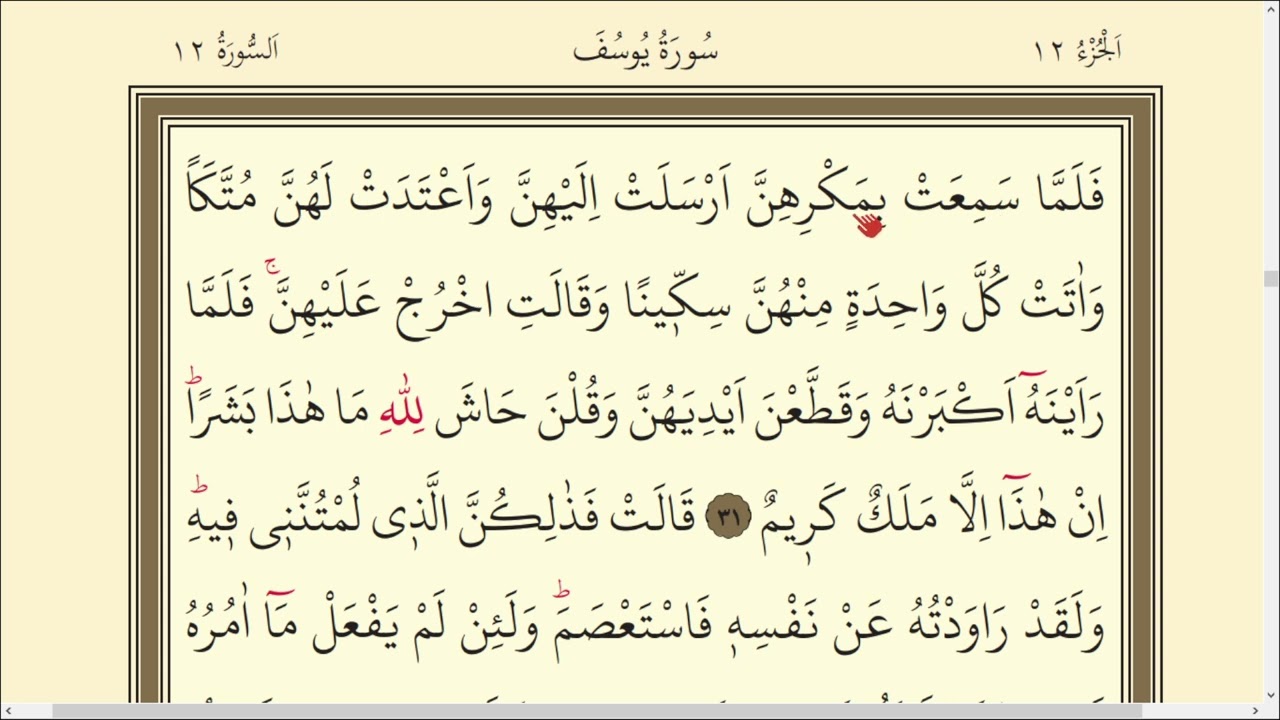 اَلْجُزْءُ ١٢ سُورَةُ يُوسُفَ اَلسُّورَةُ ١٢
فَلَمَّا سَمِعَتْ بِمَكْرِهِنَّ اَرْسَلَتْ اِلَيْهِنَّ وَاَعْتَدَتْ لَهُنَّ مُتَّكَاً
وَاٰتَتْ كُلَّ وَاحِدَةٍ مِنْهُنَّ سِكّ۪ينًا وَقَالَتِ اخْرُجْ عَلَيْهِنَّۚ فَلَمَّا
رَاَيْنَهُٓ اَكْبَرْنَهُ وَقَطَّعْنَ اَيْدِيَهُنَّ وَقُلْنَ حَاشَ لِلّٰهِ مَا هٰذَا بَشَرًاۜ
اِنْ هٰذَٓا اِلَّا مَلَكٌ كَر۪يمٌ ٣١ قَالَتْ فَذٰلِكُنَّ الَّذ۪ى لُمْتُنَّن۪ى ف۪يهِۜ
وَلَقَدْ رَاوَدْتُهُ عَنْ نَفْسِه۪ فَاسْتَعْصَمَۜ وَلَئِنْ لَمْ يَفْعَلْ مَٓا اٰمُرُهُ